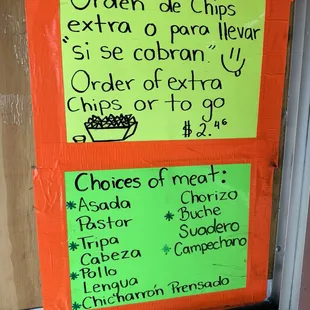 Orden de Chips
extra o para llevar
"si se cobran."
Order of extra
Chips or to go
$2.46
Choices of meat:
*Asada
Pastor
*Tripa
Cabeza
*Pollo
Lengua
*Chicharrón Prensado
Chorizo
*Buche
Suadero
*Campechano